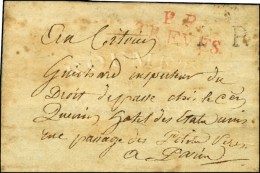 P.P.
TREVES
R
Au Citoien
Guichard inspecteur du
Droit de passe chés le Cen
Quenin hotel des Etats unis
rue passage des Petits Peres
a Paris